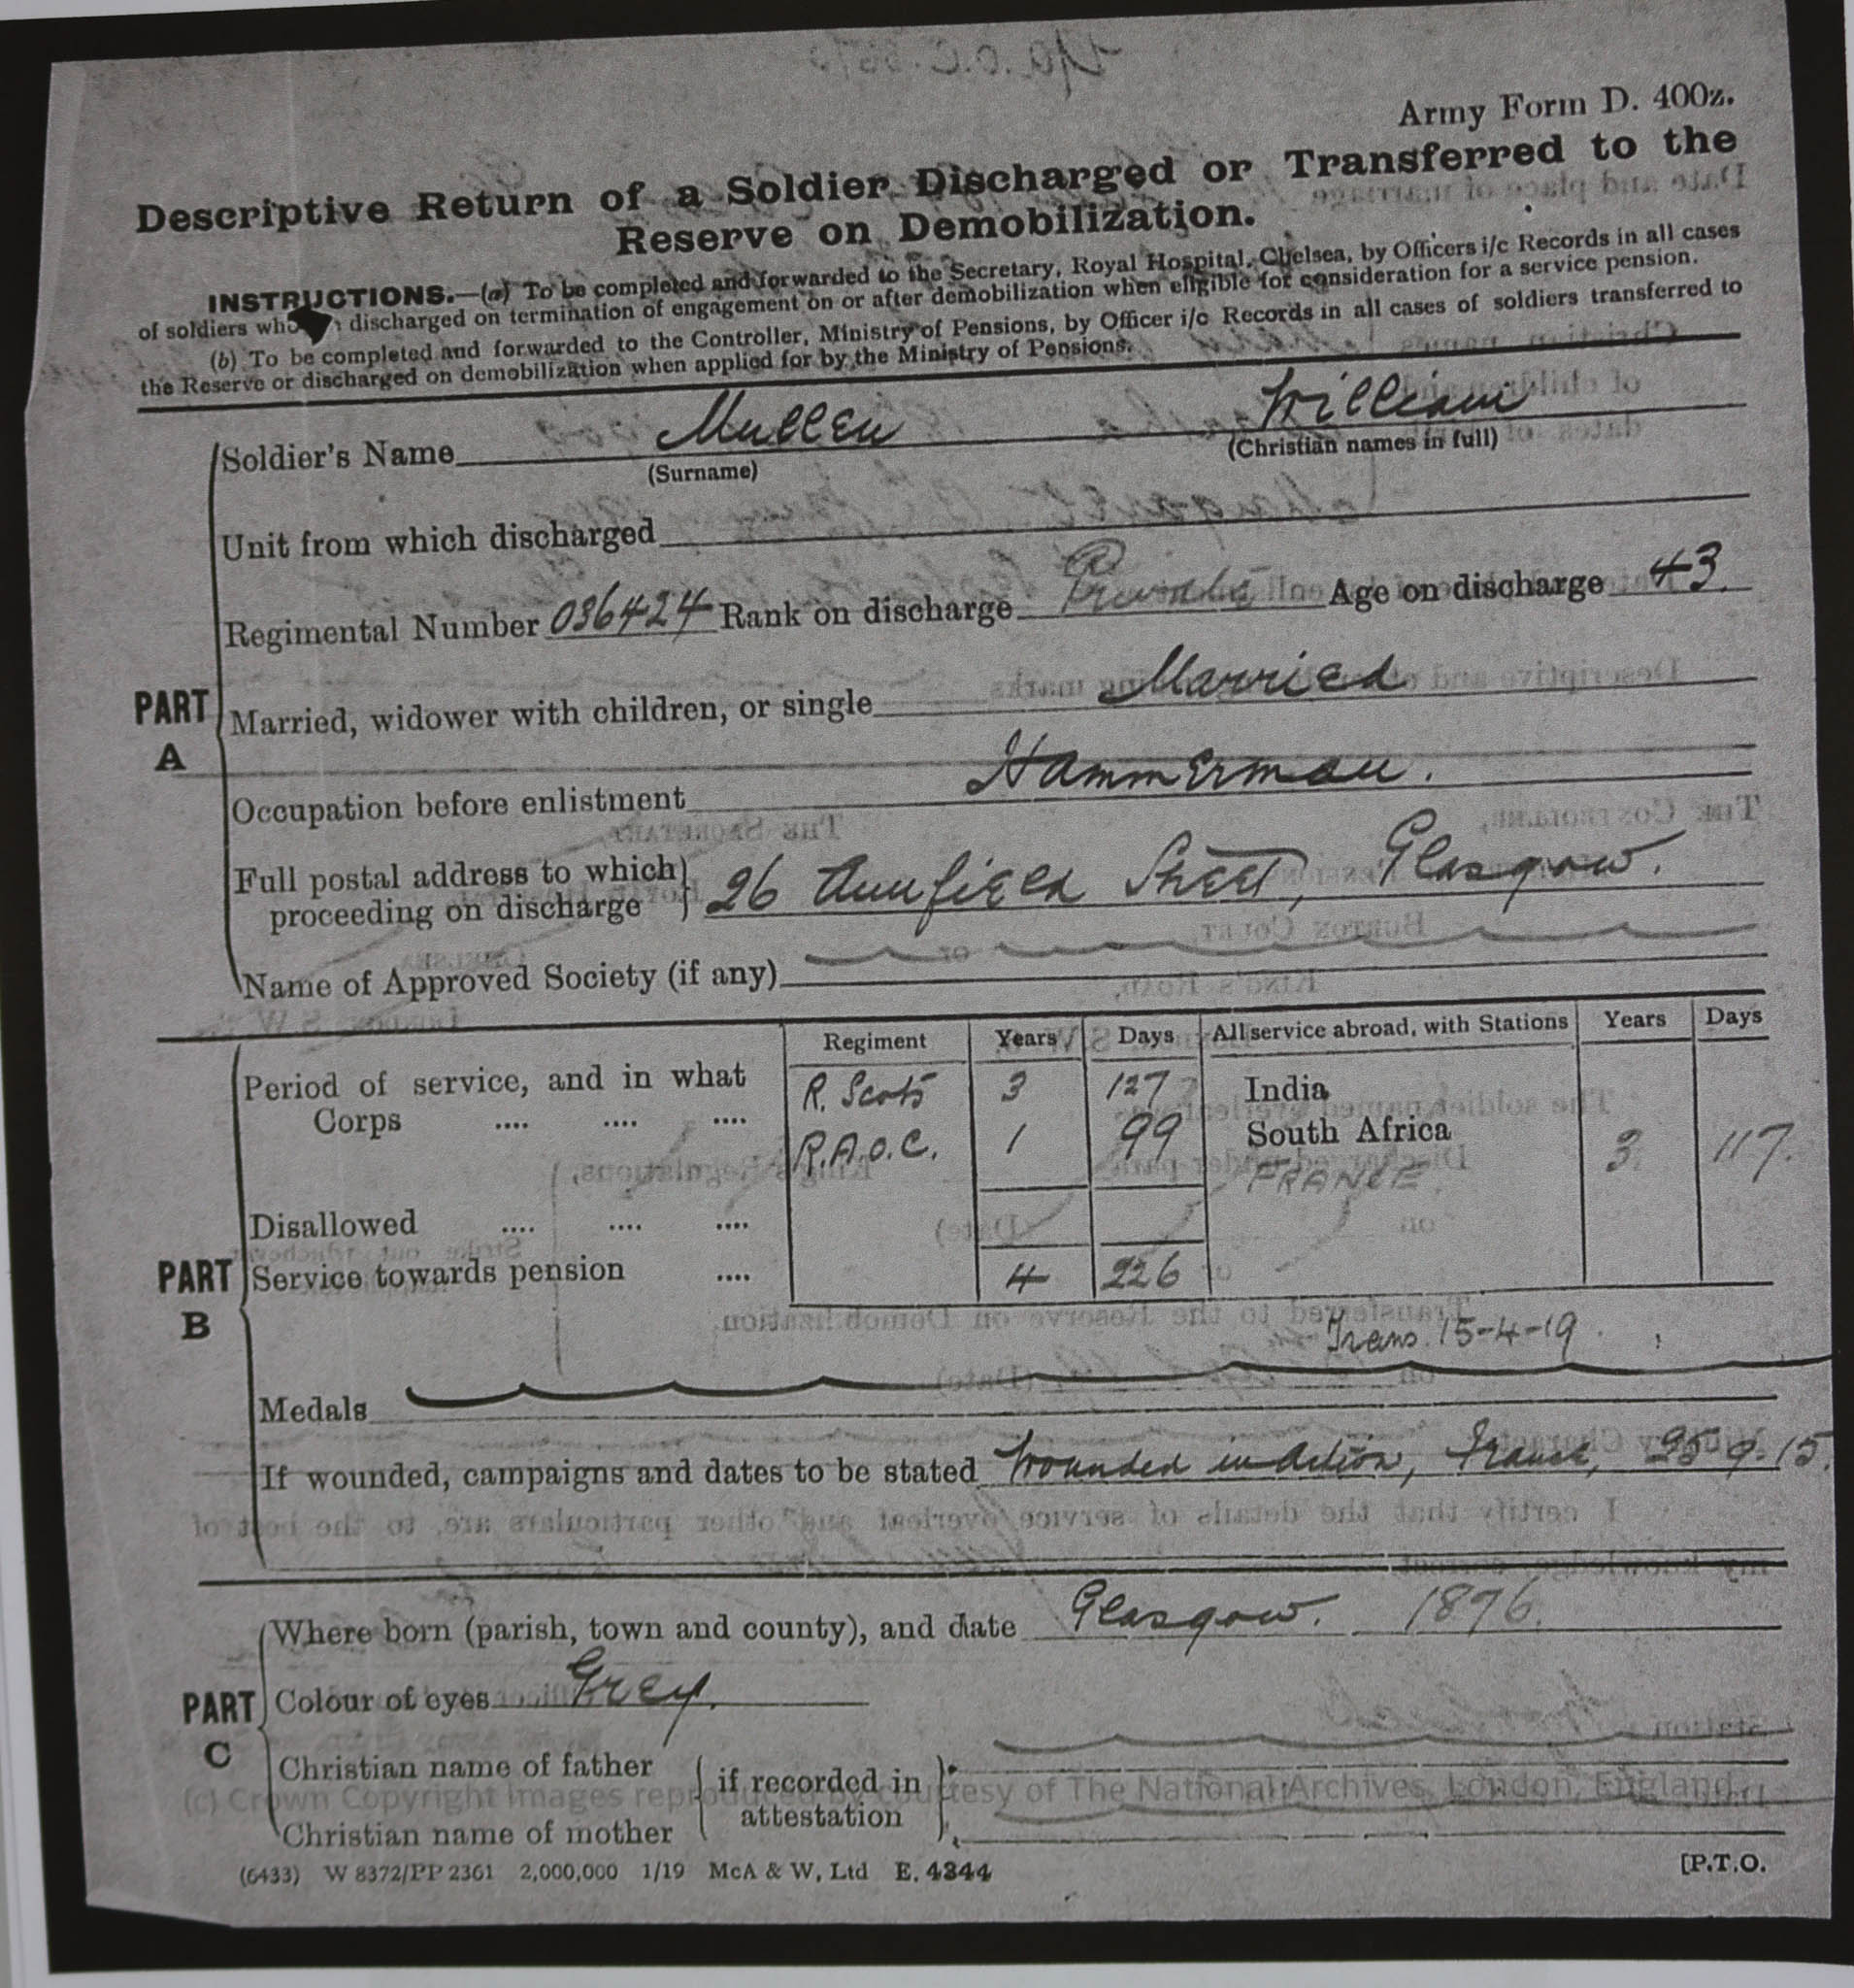 Army Form D. 400z.
Descriptive Return of a Soldier Discharged or Transferred to the
Reserve on Demobilization.
INSTRUCTIONS.—(a) To be completed and forwarded to the Secretary, Royal Hospital, Chelsea, by Officers i/c Records in all cases
of soldiers who discharged on termination of engagement on or after demobilization when eligible for consideration for a service pension.
(b) To be completed and forwarded to the Controller, Ministry of Pensions, by Officer i/c Records in all cases of soldiers transferred to
the Reserve or discharged on demobilization when applied for by the Ministry of Pensions.
PART A
Soldier's Name Mullen William
(Surname) (Christian names in full)
Unit from which discharged
Regimental Number 036424 Rank on discharge Private Age on discharge 43.
Married, widower with children, or single Married
Occupation before enlistment Hammerman.
Full postal address to which
proceeding on discharge 26 Annfield Street, Glasgow.
Name of Approved Society (if any)
PART B
Regiment Years Days All service abroad, with Stations Years Days
Period of service, and in what R. Scots 3 127 India
Corps .... .... .... R.A.O.C. 1 99 South Africa 3 117.
FRANCE
Disallowed .... .... ....
Service towards pension .... 4 226
Trans. 15-4-19.
Medals
If wounded, campaigns and dates to be stated Wounded in Action, France, 25-9-15.
PART C
Where born (parish, town and county), and date Glasgow. 1876.
Colour of eyes Grey.
Christian name of father
if recorded in
attestation
Christian name of mother
(c) Crown Copyright Images reproduced by courtesy of The National Archives, London, England.
(6433) W 8372/PP 2361 2,000,000 1/19 McA & W, Ltd E. 4344
[P.T.O.